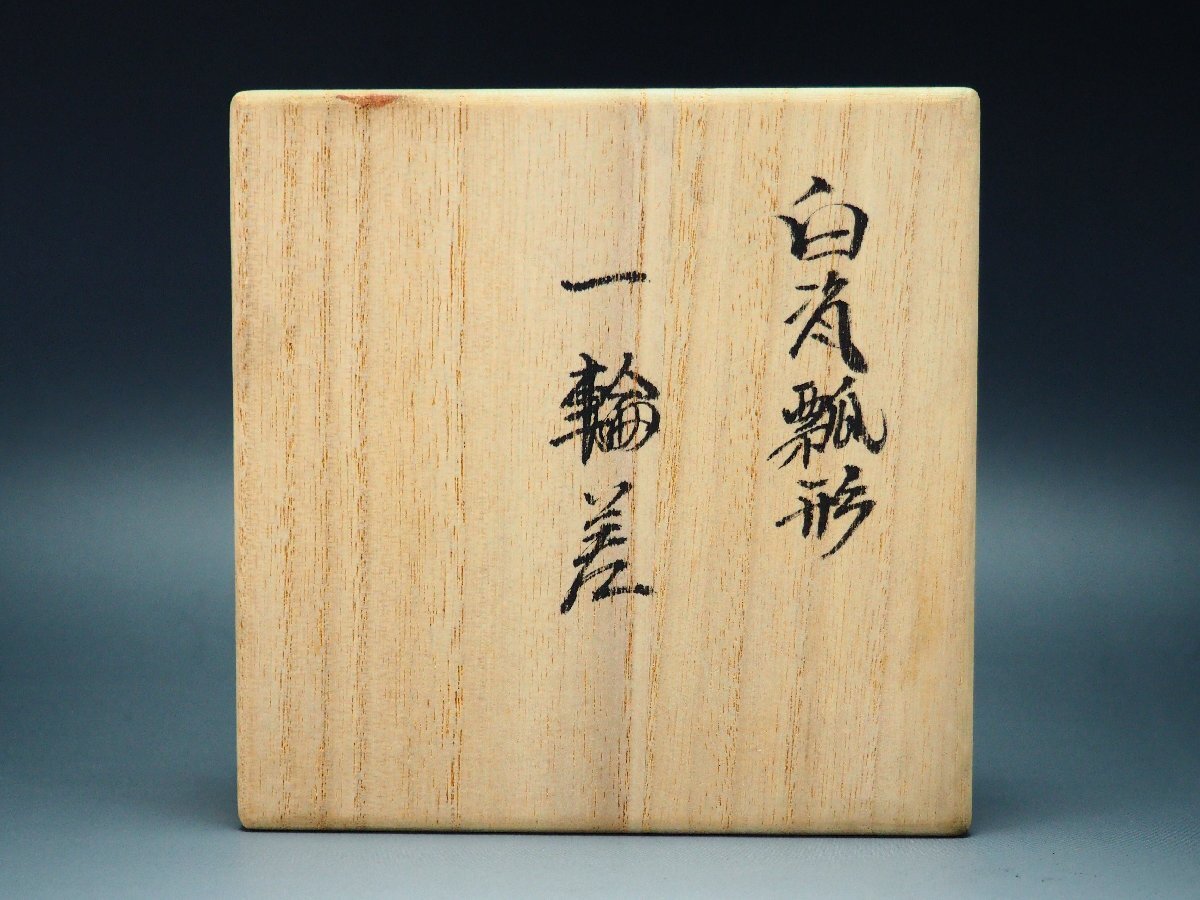 白瓷瓢形
一輪差